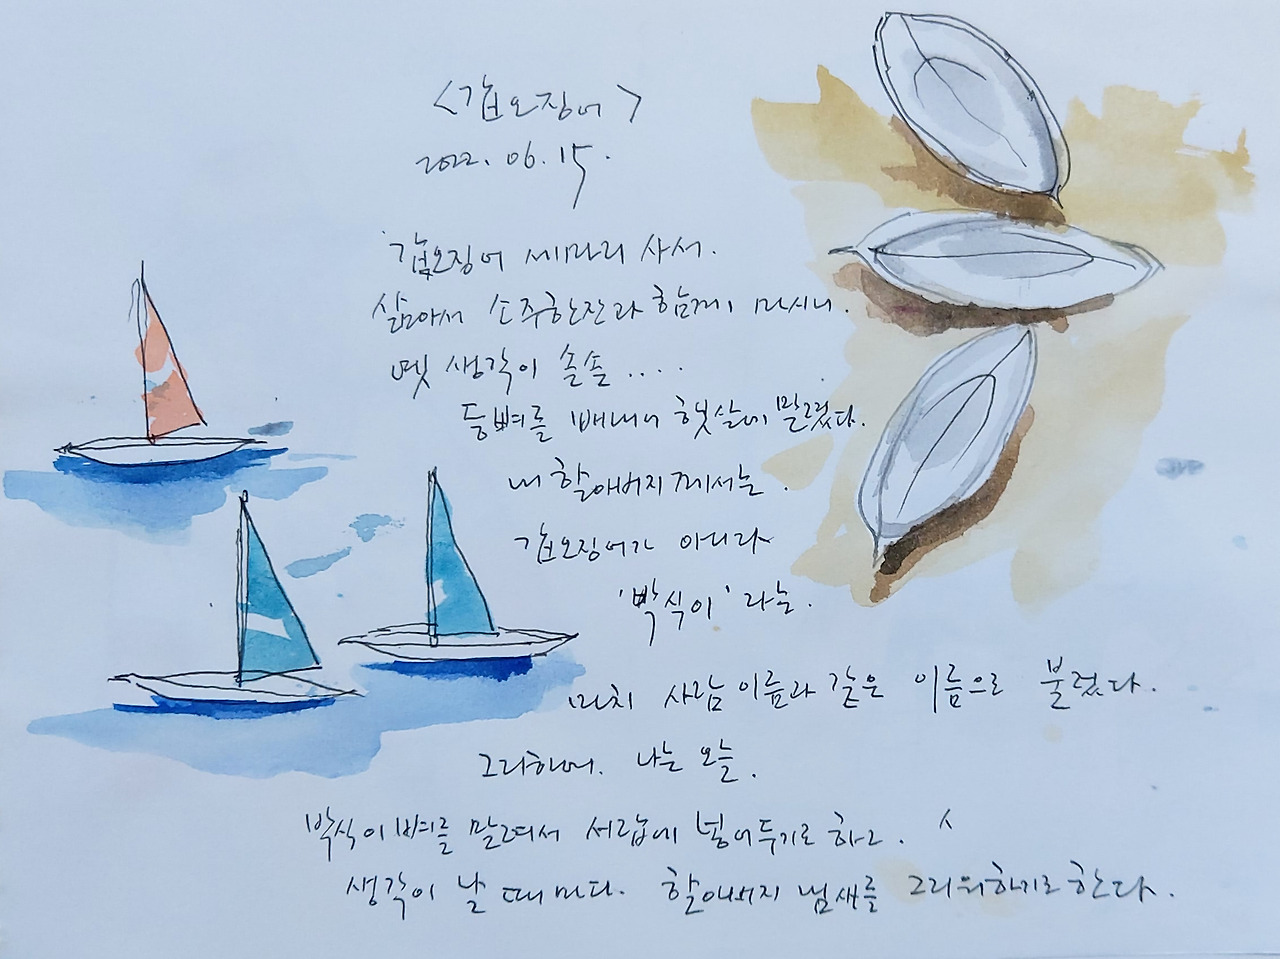 <갑오징어>
2022. 06. 15.
갑오징어 세마리 사서.
삶아서 소주한잔과 함께 마시니.
옛 생각이 솔솔 ....
등뼈를 빼내어 햇살에 말렸다.
내 할아버지께서는.
갑오징어가 아니라
'박식이' 라는.
마치 사람이름과 같은 이름으로 불렀다.
그리하여. 나는 오늘.
박식이 뼈를 말려서 서랍에 넣어두기로 하고.
생각이 날 때마다. 할아버지 냄새를 그리워하기로 한다.